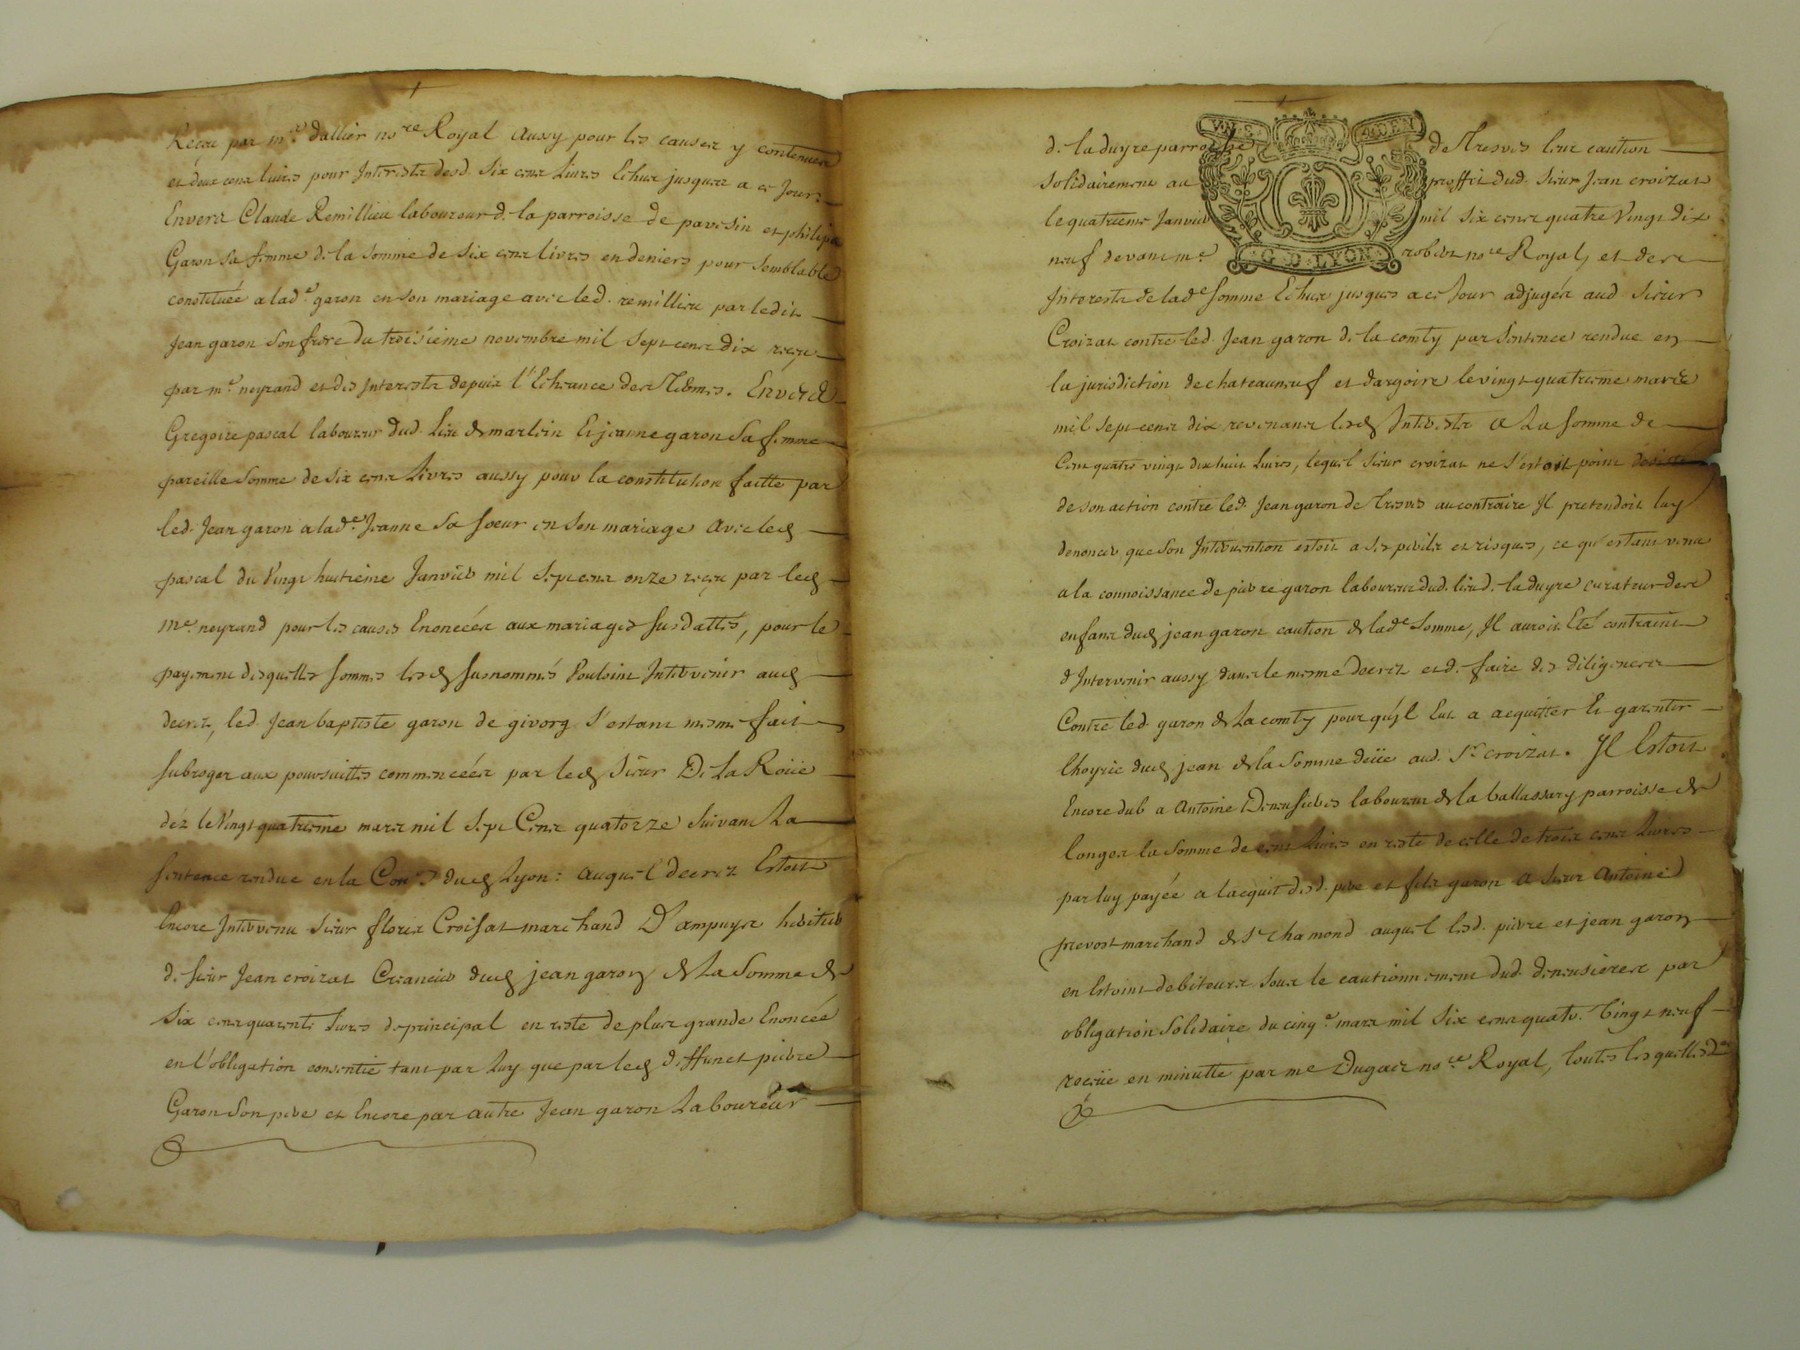 Reçeu par m.e dallier no.re Royal aussy pour les causes y contenues
et deux cens livres pour Interests desd. six cens Livres Echus jusques a ce Jour
Envers Claude Remillieu laboureur de la parroisse de pavesin et philipa
Garon sa femme de la somme de six cens livres en deniers pour semblable
constituée a lad.e garon en son mariage avec led. remillieu par ledit
Jean garon son frere du troisiéme novembre mil sept cens dix reçeu
par m.e neyrand et des Interests depuis l'Echeance des termes. Envers
Gregoire pascal laboureur dud. Lieu de marlin Et jeanne garon sa femme
pareille somme de six cens Livres aussy pour la constitution faitte par
led. Jean garon a lad.e Jeanne sa soeur en son mariage avec led
pascal du Vingt huitiéme Janvier mil sept cens onze reçeu par led
me. neyrand pour les causes Enoncées aux mariages susdattés, pour le
payement desquelles sommes lesd susnommés Vouloint Intervenir aud
decret, led. Jean baptiste garon de givors s'estant mesme fait
subroger aux poursuittes commencées par led Sieur De La Roüe
déz le Vingt quatriéme mars mil sept Cens quatorze suivant La
sentence rendue en la Con.. dud Lyon: auquel decret Estoit
Encore Intervenu sieur fleurs Croisat marchand D'ampuys heritier
de sieur Jean croizat Creancier dud jean garon de La somme de
six cens quarente livres de principal en reste de plus grande Enoncée
en l'obligation consentie tant par Luy que par led deffunct pierre
Garon son pere et Encore par autre Jean garon Laboureur
de la duyre parroisse de Tresves leur caution
solidairement au proffit dud. sieur Jean croizat
le quatrieme Janvier mil six cens quatre Vingt dix
neuf devant m.e robert no.re Royal, et des
Interests de lad.e somme Echus jusques a ce Jour adjugés aud sieur
Croizat contre led. Jean garon de la comty par sentence rendue en
la jurisdiction de chateauneuf et dargoire le vingt quatriéme mars
mil sept cens dix revenans lesd Interests a La somme de
Cent quatre vingt dix huit livres, lequel sieur croizat ne s'estoit point desisté
de son action contre led. Jean garon de Tresves au contraire Il pretendoit luy
denoncer que son Intervention estoit a ses perils et risques, ce qu'estant venu
a la connoissance de pierre garon laboureur dud. lieu d. la duyre curateur des
enfans dud jean garon caution de lad.e somme, Il auroit Eté contraint
d'Intervenir aussy dans le mesme decret et de faire des diligences
Contre led. garon de La comty pour qu'il Eut a acquitter Et garentir
l'hoyrie dud jean de la somme deüe aud. s.r croizat. Il Estoit
Encore dub a Antoine Deneusieres laboureur de la ballassary parroisse de
longes la somme de cent Livres en reste de celle de trois cens Livres
par luy payée a lacquit desd. pere et fils garon a sieur Antoine
prevost marchand de st chamond auquel lesd. pierre et jean garon
en Estoint debiteurs sous le cautionnement dud. deneusieres par
obligation solidaire du cinq.e mars mil six cens quatre Vingt neuf
reçeüe en minutte par me Dugas no.re Royal, toutes lesquelles
G. D. LYON